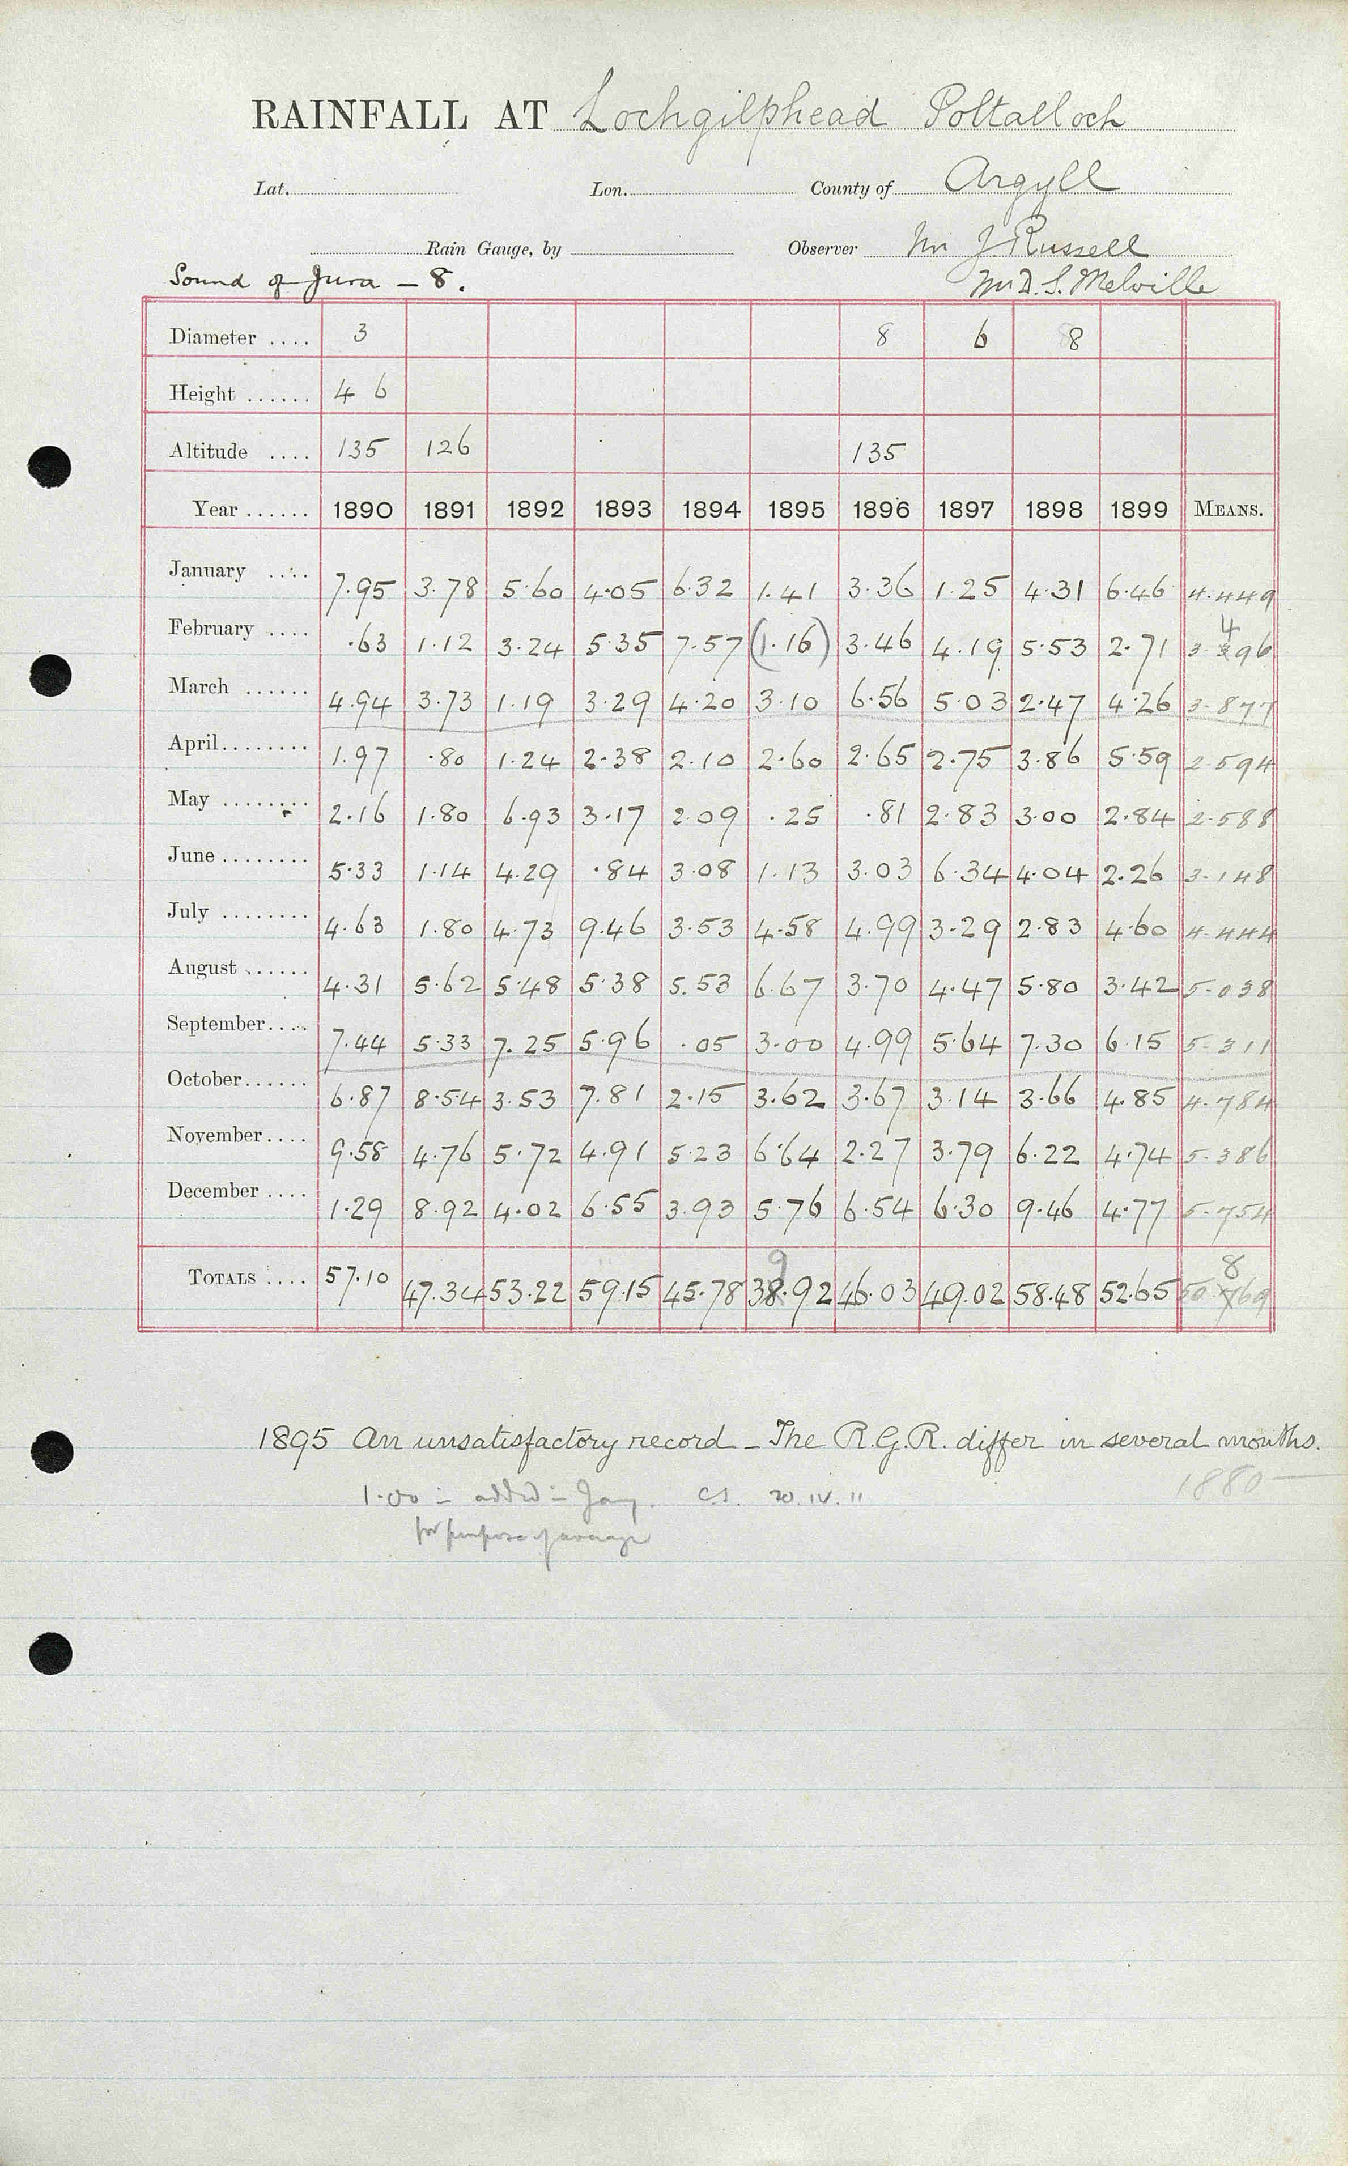 RAINFALL AT Lochgilphead Poltalloch
Lat. Lon. County of Argyll
Rain Gauge, by Observer Mr J Russell
Sound of Jura – 8. Mr D. S. Melville
Diameter .... 3 8 6 8
Height ...... 4 6
Altitude .... 135 126 135
Year ...... 1890 1891 1892 1893 1894 1895 1896 1897 1898 1899 MEANS.
January .... 7.95 3.78 5.60 4.05 6.32 1.41 3.36 1.25 4.31 6.46 4.449
February .... .63 1.12 3.24 5.35 7.57 (1.16) 3.46 4.19 5.53 2.71 3.496
March ...... 4.94 3.73 1.19 3.29 4.20 3.10 6.56 5.03 2.47 4.26 3.877
April........ 1.97 .80 1.24 2.38 2.10 2.60 2.65 2.75 3.86 5.59 2.594
May ........ 2.16 1.80 6.93 3.17 2.09 .25 .81 2.83 3.00 2.84 2.588
June ........ 5.33 1.14 4.29 .84 3.08 1.13 3.03 6.34 4.04 2.26 3.148
July ........ 4.63 1.80 4.73 9.46 3.53 4.58 4.99 3.29 2.83 4.60 4.444
August ...... 4.31 5.62 5.48 5.38 5.53 6.67 3.70 4.47 5.80 3.42 5.038
September.... 7.44 5.33 7.25 5.96 .05 3.00 4.99 5.64 7.30 6.15 5.311
October...... 6.87 8.54 3.53 7.81 2.15 3.62 3.67 3.14 3.66 4.85 4.784
November.... 9.58 4.76 5.72 4.91 5.23 6.64 2.27 3.79 6.22 4.74 5.386
December .... 1.29 8.92 4.02 6.55 3.93 5.76 6.54 6.30 9.46 4.77 5.754
TOTALS .... 57.10 47.34 53.22 59.15 45.78 39.92 46.03 49.02 58.48 52.65 50.869
1895 An unsatisfactory record – The R.G.R. differ in several months.
1.00 in added in Jany. C.S. 20.IV.11 1880—
for purpose of average